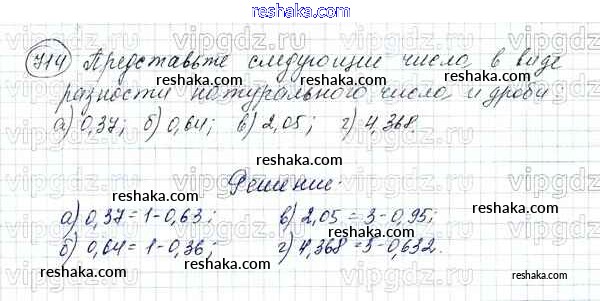 reshaka.com
714 Представьте следующие числа в виде
reshaka.com reshaka.com
разности натурального числа и дроби:
а) 0,37; б) 0,64; в) 2,05; г) 4,368.
reshaka.com reshaka.com
Решение.
reshaka.com reshaka.com
а) 0,37 = 1 - 0,63; в) 2,05 = 3 - 0,95;
б) 0,64 = 1 - 0,36; г) 4,368 = 5 - 0,632.
reshaka.com reshaka.com
reshaka.com
vipgdz.ru vipgdz.ru vipgdz.ru